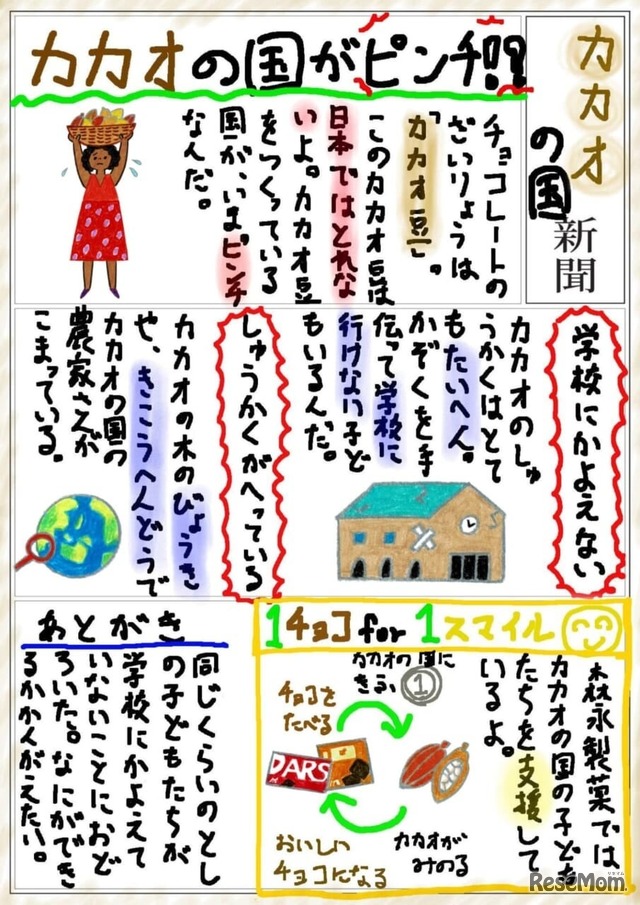 カカオ
の国
新聞
カカオの国がピンチ!!
チョコレートの
ざいりょうは
「カカオ豆」。
このカカオ豆は
日本ではとれな
いよ。カカオ豆
をつくっている
国が、いまピンチ
なんだ。
学校にかよえない
カカオのしゅ
うかくはとて
もたいへん。
かぞくを手
伝って学校に
行けない子ど
もいるんだ。
しゅうかくがへっている
カカオの木のびょうき
や、きこうへんどうで
カカオの国の
農家さんが
こまっている。
1チョコ for 1スマイル
森永製菓では
カカオの国の子ども
たちを支援して
いるよ。
チョコを
たべる
カカオの国に
きふ
1
DARS
カカオが
みのる
おいしい
チョコになる
あとがき
同じくらいのとし
の子どもたちが
学校にかよえて
いないことにおど
ろいた。なにができ
るかかんがえたい。
リセマム
ReseMom.